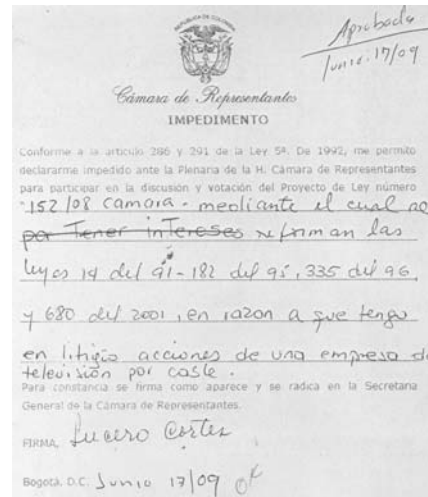 REPUBLICA DE COLOMBIA
Aprobada
Junio. 17/09
Cámara de Representantes
IMPEDIMENTO
Conforme a la articulo 286 y 291 de la Ley 5ª. De 1992, me permito
declararme impedido ante la Plenaria de la H. Cámara de Representantes
para participar en la discusión y votación del Proyecto de Ley número
152/08 camara. mediante el cual
por Tener intereses reforman las
leyes 14 del 91 - 182 del 95, 335 del 96
y 680 del 2001, en razon a que tengo
en litigio acciones de una empresa de
televisión por cable.
Para constancia se firma como aparece y se radica en la Secretaria
General de la Cámara de Representantes.
FIRMA, Lucero Cortes
Bogotá, D.C. Junio 17/09